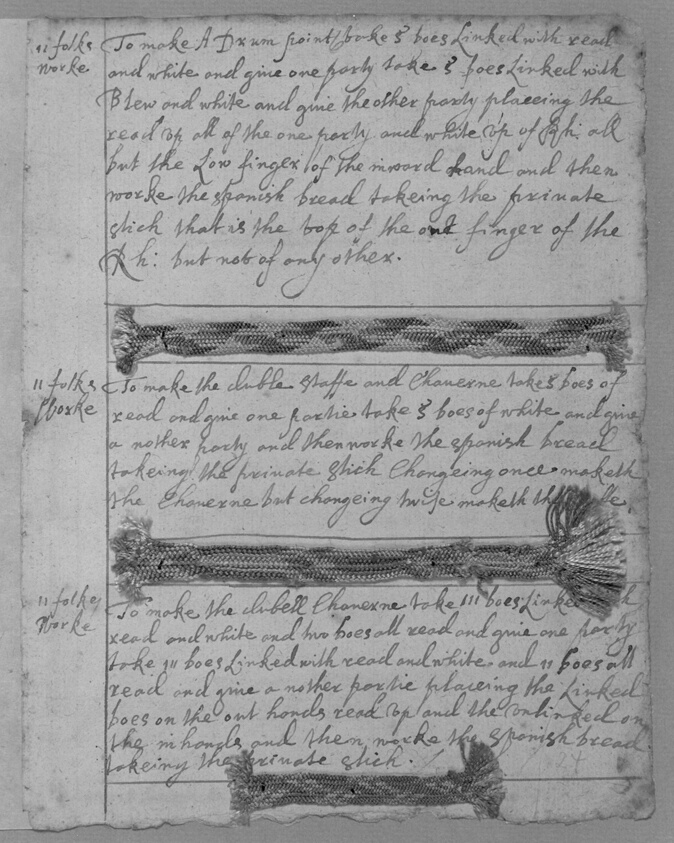 11 folks
Worke
To make A Drum point take 5 boes Linked with read
and white and give one party take 5 boes Linked with
Blew and white and give the other party placeing the
read up all of the one party and white up of Rh: all
but the Low finger of the inword hand and then
worke the spanish bread takeing the private
stich that is the top of the out finger of the
Rh: but not of any other.
11 folks
Worke
To make the duble staffe and Chaverne take 5 boes of
read and give one partie take 5 boes of white and give
a nother party and then worke the spanish bread
takeing the private stich Changeing once maketh
the Chaverne but changeing twise maketh
11 folkes
Worke
To make the dubell Chaverne take 111 boes Linked
read and white and two boes all read and give one party
take 111 boes Linked with read and white and 11 boes all
read and give a nother partie placeing the Linked
boes on the out hands read up and the unlinked on
the inhands and then worke the spanish bread
takeing the private stich.